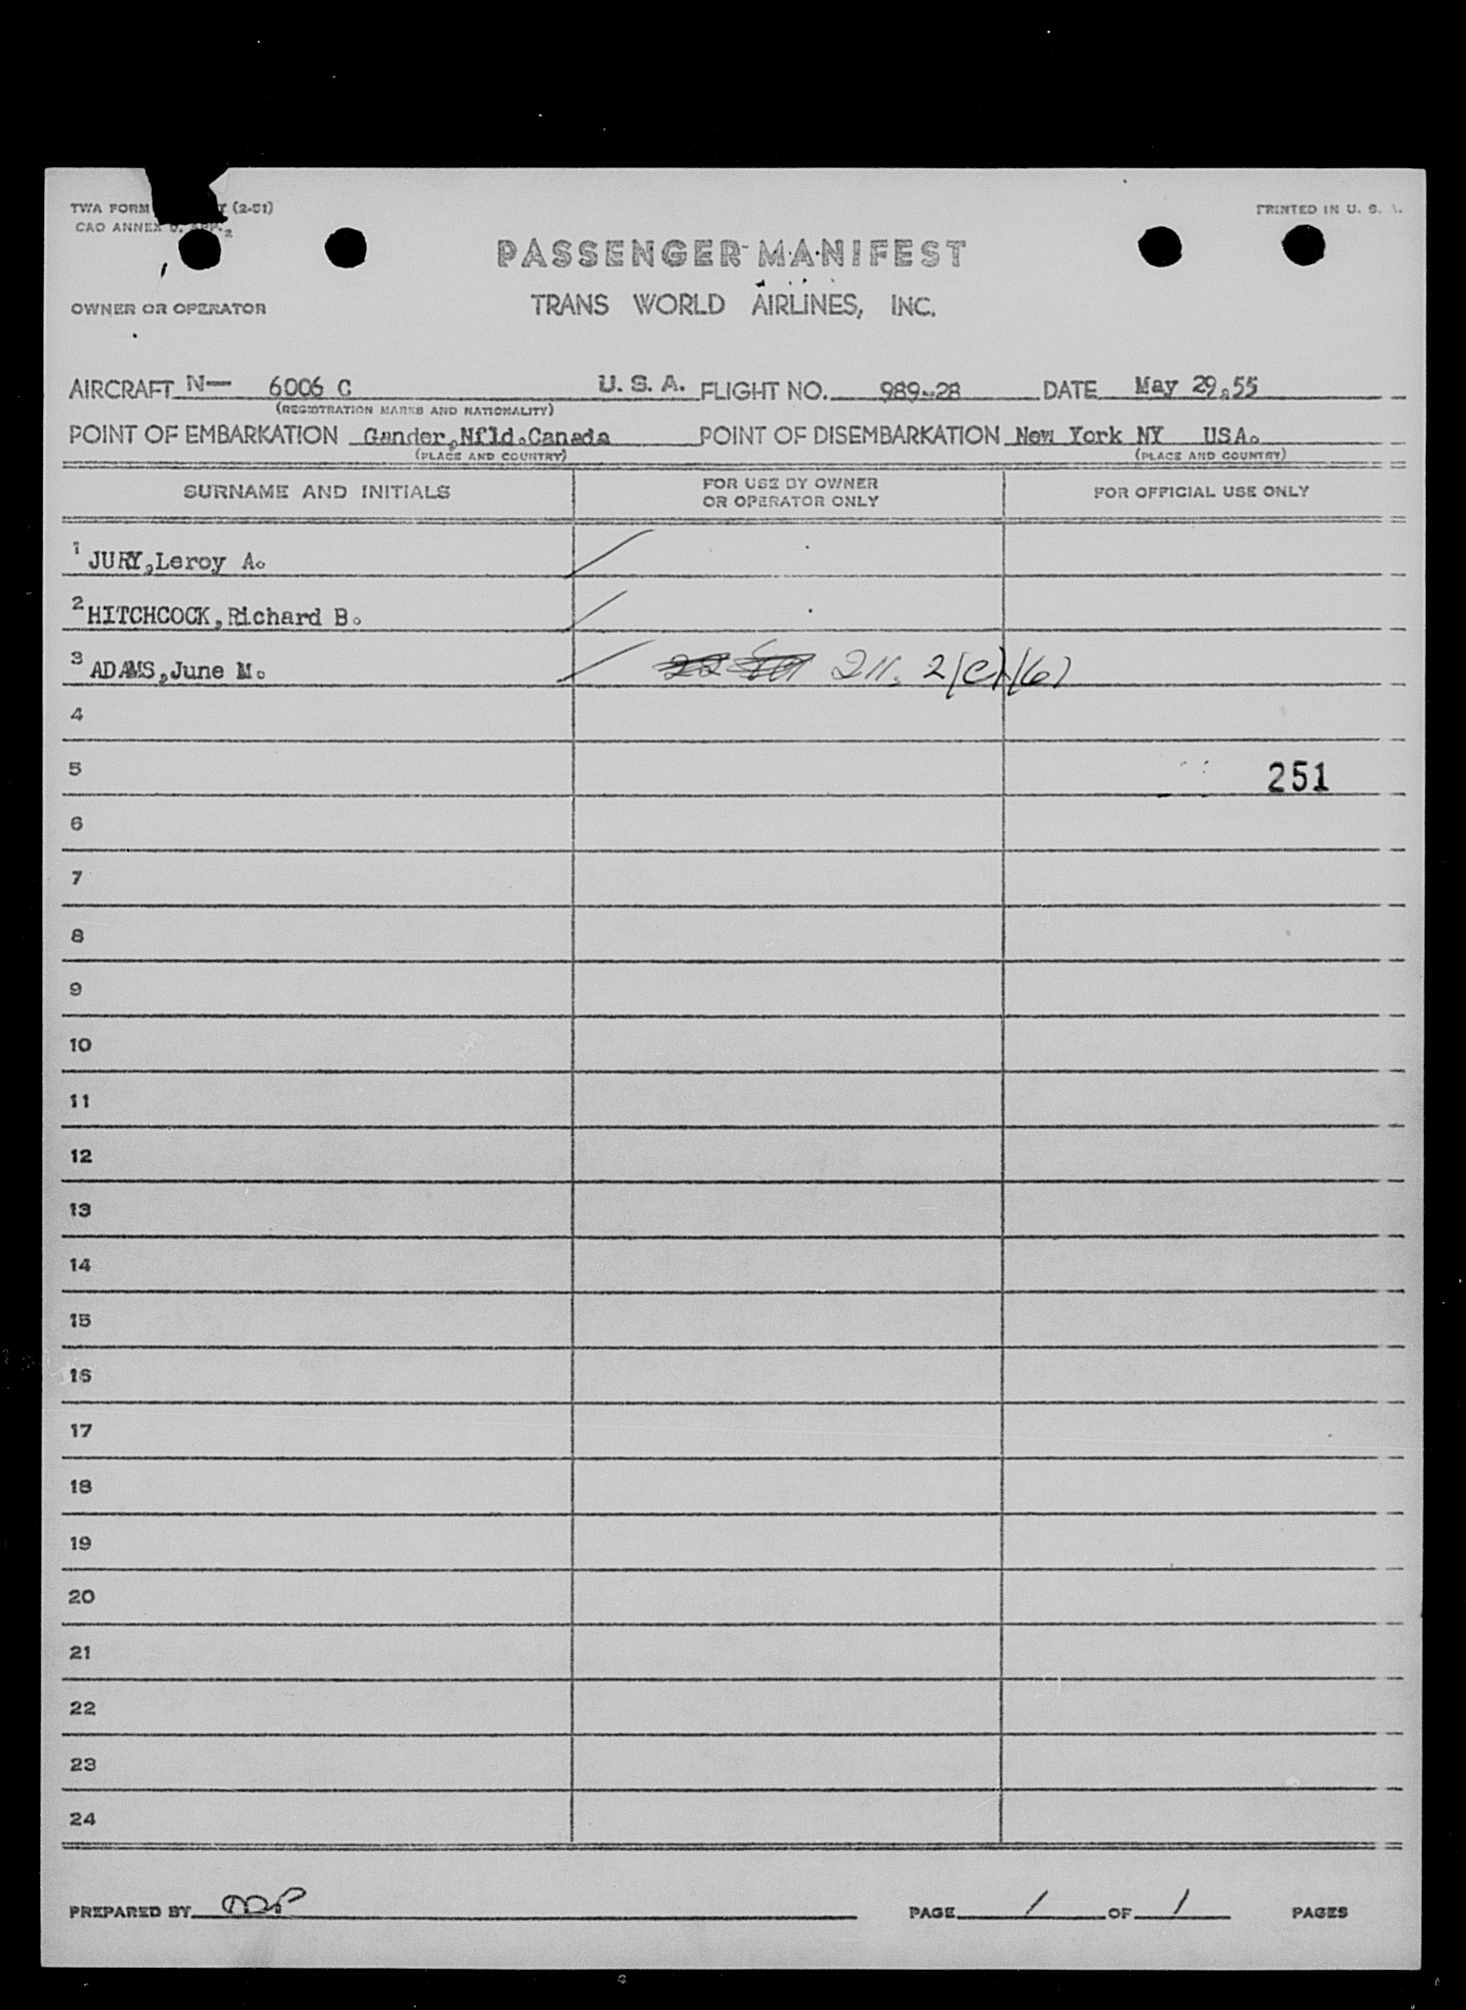 TWA FORM (2-51)
PRINTED IN U. S. A.
CAO ANNEX 9, APP. 2
PASSENGER MANIFEST
OWNER OR OPERATOR
TRANS WORLD AIRLINES, INC.
AIRCRAFT N— 6006 C U. S. A. FLIGHT NO. 989-28 DATE May 29,55
(REGISTRATION MARKS AND NATIONALITY)
POINT OF EMBARKATION Gander,Nfld.Canada POINT OF DISEMBARKATION New York NY USA.
(PLACE AND COUNTRY) (PLACE AND COUNTRY)
SURNAME AND INITIALS FOR USE BY OWNER OR OPERATOR ONLY FOR OFFICIAL USE ONLY
1 JURY,Leroy A.
2 HITCHCOCK,Richard B.
3 ADAMS,June M. 211. 2(c)(6)
4
5 251
6
7
8
9
10
11
12
13
14
15
16
17
18
19
20
21
22
23
24
PREPARED BY PAGE 1 OF 1 PAGES